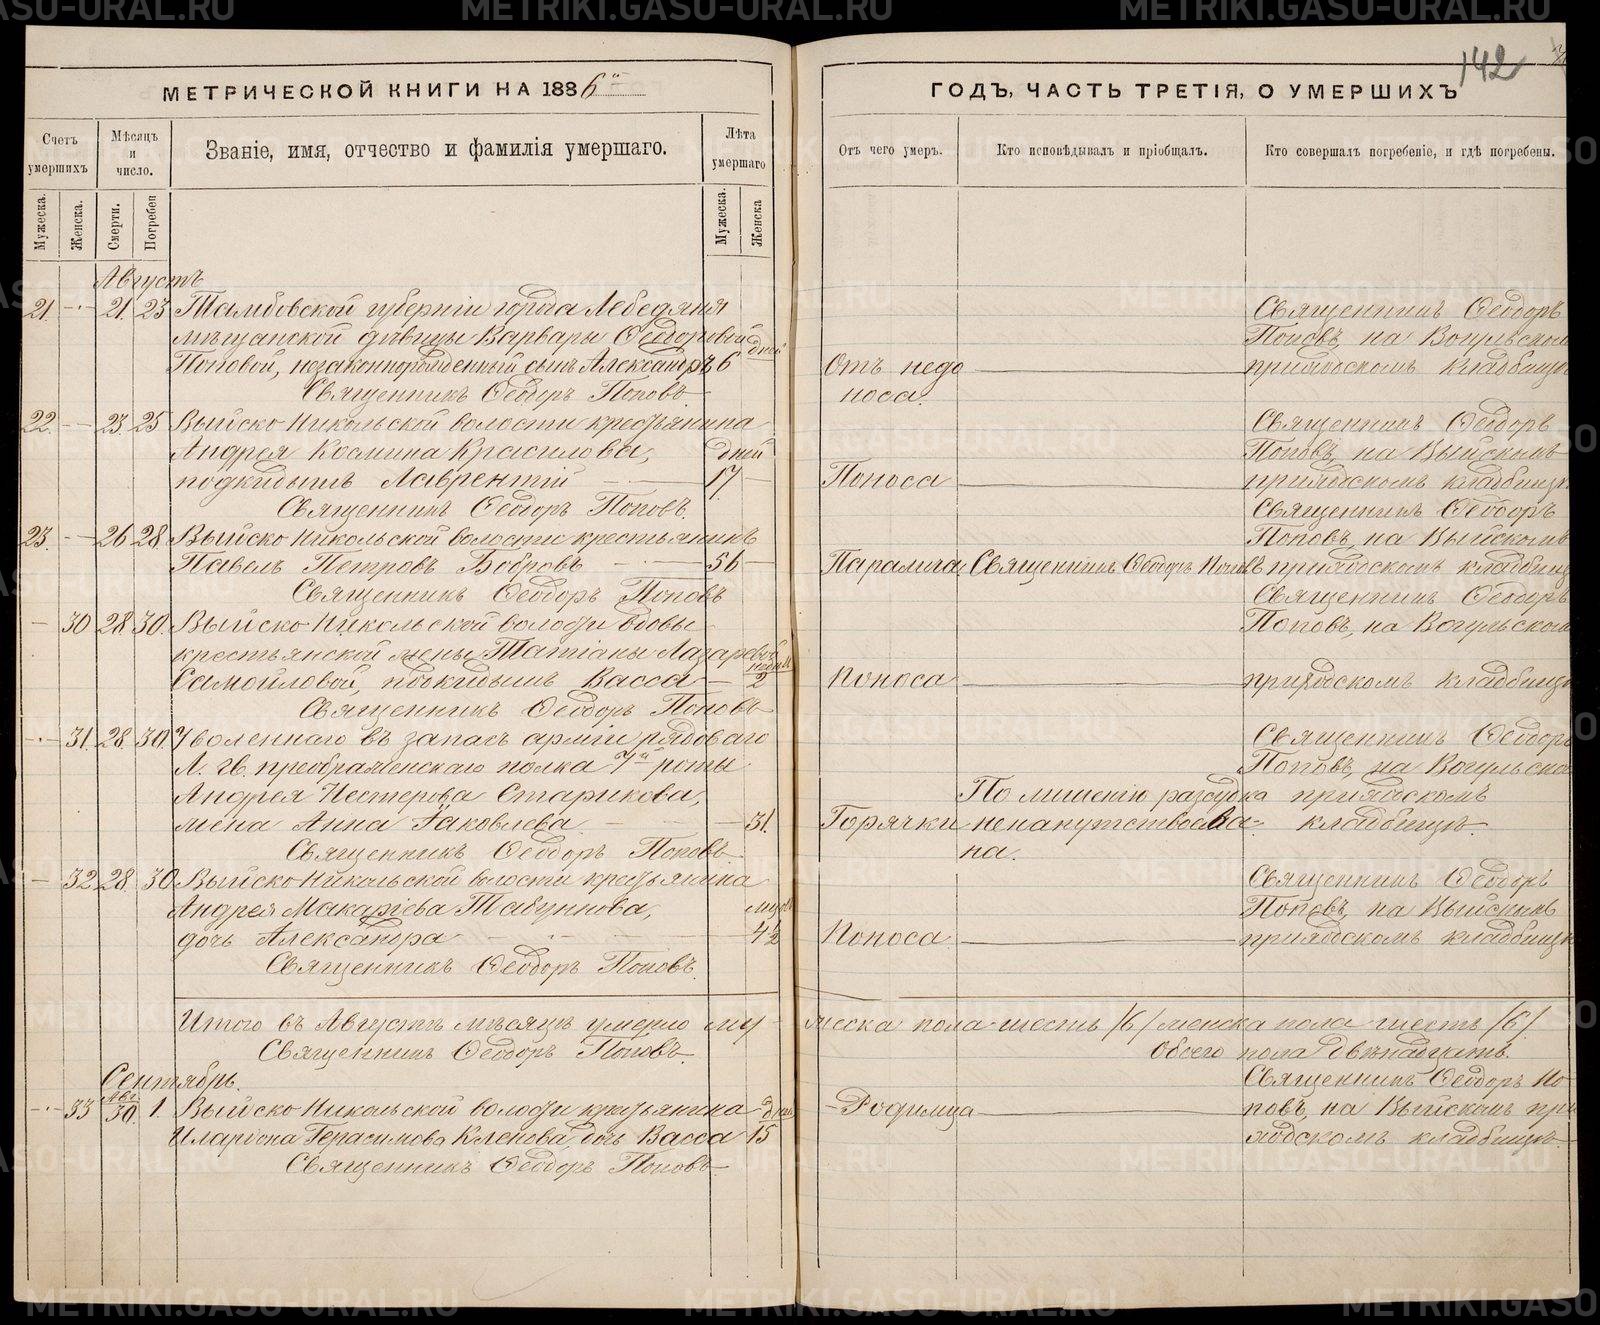 142
МЕТРИЧЕСКОЙ КНИГИ НА 1886й
ГОДЪ, ЧАСТЬ ТРЕТІЯ, О УМЕРШИХЪ
Счетъ умершихъ
Мѣсяцъ и число.
Званіе, имя, отчество и фамилія умершаго.
Лѣта умершаго
Отъ чего умеръ.
Кто исповѣдывалъ и пріобщалъ.
Кто совершалъ погребеніе, и гдѣ погребены.
Мужеска. Женска. Смерти. Погребен Мужеска. Женска
Августъ
21 21 23 Тамбовской губерніи города Лебедяня Священникъ Ѳеодоръ
мѣщанской дѣвицы Варвары Ѳеодоровой дней Поповъ, на Вогульском
Поповой, незаконнорожденный сынъ Александръ 6 Отъ недо приходскомъ кладбищѣ
Священникъ Ѳеодоръ Поповъ носа.
22 23 25 Выйско Никольской волости крестьянина Священникъ Ѳеодоръ
Андрея Космина Красилова, дней Поповъ, на Выйскомъ
подкидышъ Лаврентій 17 Поноса приходскомъ кладбищѣ
Священникъ Ѳеодоръ Поповъ. Священникъ Ѳеодоръ
23. 26 28 Выйско Никольской волости крестьянинъ Поповъ, на Выйскомъ
Павелъ Петровъ Бобровъ 56 Паралича Священникъ Ѳеодоръ Поповъ приходскомъ кладбищѣ
Священникъ Ѳеодоръ Поповъ Священникъ Ѳеодоръ
30 28 30. Выйско Никольской волости вдовы Поповъ, на Вогульском
крестьянской жены Татіаны Лазаревой недѣли
Самойловой, подкидышъ Васса 2 Поноса приходскомъ кладбищѣ
Священникъ Ѳеодоръ Поповъ
31 28 30. Уволеннаго въ запасъ арміи рядоваго Священникъ Ѳеодоръ
Л. гв. преображенскаго полка 7й роты Поповъ, на Вогульско
Андрея Нестерова Старикова, По лишенію разсудка приходскомъ
жена Анна Іаковлева 31. Горячки ненапутствова- кладбищѣ.
Священникъ Ѳеодоръ Поповъ на.
32 28. 30 Выйско Никольской волости крестьянина Священникъ Ѳеодоръ
Андрея Макаріева Табуннова, Поповъ, на Выйскомъ
дочь Александра 4½ Поноса приходскомъ кладбищѣ
Священникъ Ѳеодоръ Поповъ.
Итого въ Августѣ мѣсяцѣ умерло мужеска пола шесть /6/ женска пола шесть /6/
Священникъ Ѳеодоръ Поповъ. Обоего пола двѣнадцать.
Сентябрь. Священникъ Ѳеодоръ По-
33 Авг. 30. 1. Выйско Никольской волости крестьянина дней Родимца повъ, на Выйскомъ при
Иларіона Герасимова Кленова, дочь Васса 15 ходскомъ кладбищѣ.
Священникъ Ѳеодоръ Поповъ
METRIKI.GASO-URAL.RU